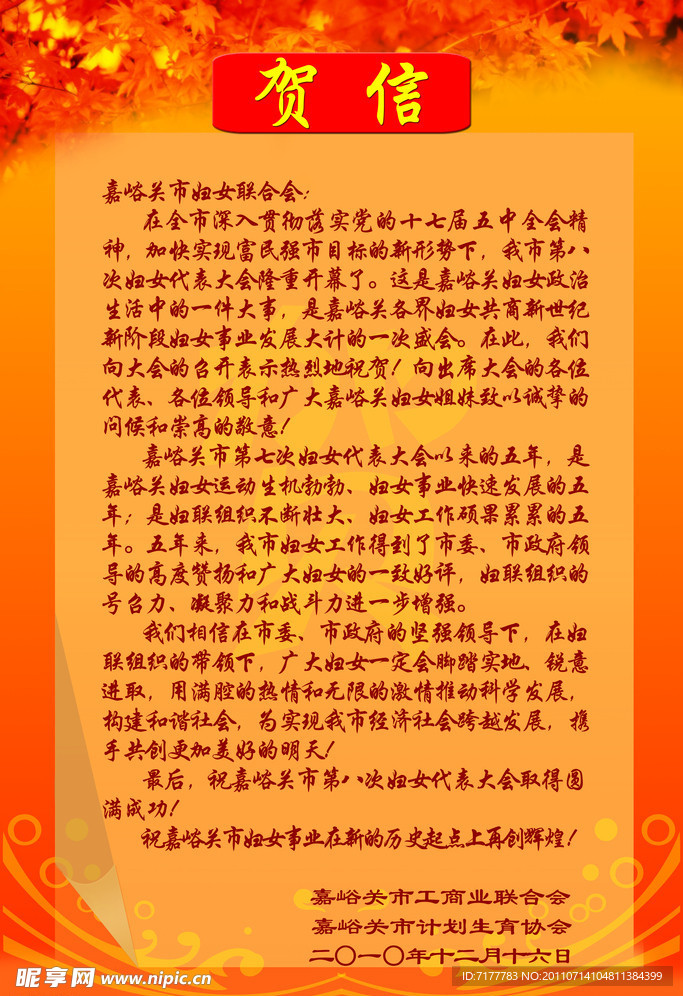 贺 信
嘉峪关市妇女联合会：
在全市深入贯彻落实党的十七届五中全会精
神，加快实现富民强市目标的新形势下，我市第八
次妇女代表大会隆重开幕了。这是嘉峪关妇女政治
生活中的一件大事，是嘉峪关各界妇女共商新世纪
新阶段妇女事业发展大计的一次盛会。在此，我们
向大会的召开表示热烈地祝贺！向出席大会的各位
代表、各位领导和广大嘉峪关妇女姐妹致以诚挚的
问候和崇高的敬意！
嘉峪关市第七次妇女代表大会以来的五年，是
嘉峪关妇女运动生机勃勃、妇女事业快速发展的五
年；是妇联组织不断壮大、妇女工作硕果累累的五
年。五年来，我市妇女工作得到了市委、市政府领
导的高度赞扬和广大妇女的一致好评，妇联组织的
号召力、凝聚力和战斗力进一步增强。
我们相信在市委、市政府的坚强领导下，在妇
联组织的带领下，广大妇女一定会脚踏实地、锐意
进取，用满腔的热情和无限的激情推动科学发展，
构建和谐社会，为实现我市经济社会跨越发展，携
手共创更加美好的明天！
最后，祝嘉峪关市第八次妇女代表大会取得圆
满成功！
祝嘉峪关市妇女事业在新的历史起点上再创辉煌！
嘉峪关市工商业联合会
嘉峪关市计划生育协会
二〇一〇年十二月十六日
昵享网 www.nipic.cn
ID:7177783 NO:20110714104811384399